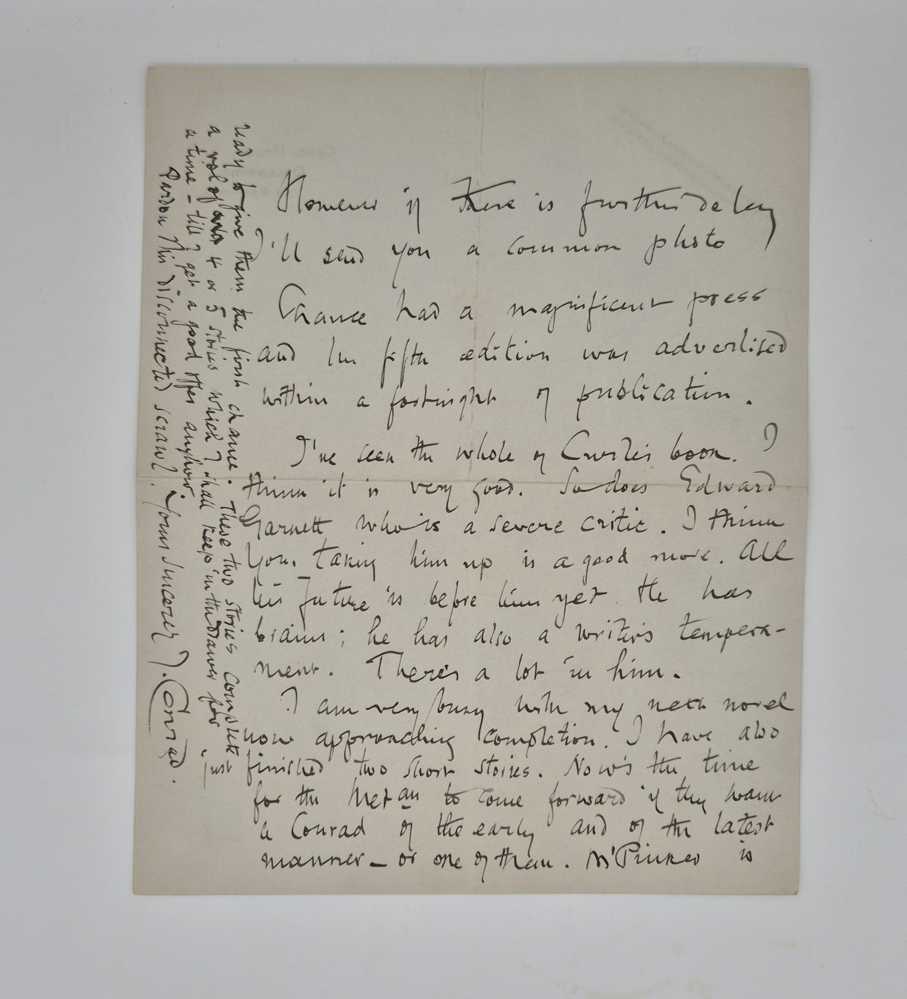 However if there is further delay
I'll send you a common photo
Chance had a magnificent press
and the fifth edition was advertised
within a fortnight of publication.
I've seen the whole of Curle's book. I
think it is very good. So does Edward
Garnett who is a severe critic. I think
your taking him up is a good move. All
his future is before him yet. He has
brains; he has also a writer's tempera-
ment. There's a lot in him.
I am very busy with my next novel
now approaching completion. I have also
just finished two short stories. Now's the time
for the Metan to come forward if they want
a Conrad of the early and of the latest
manner – or one of them. Mr Pinker is
ready to give them the first chance. These two stories complete
a vol of 4 or 5 stories which I shall keep in the drawer for
a time – till I get a good offer anyhow.
Pardon this disconnected scrawl. Yours sincerely J. Conrad.